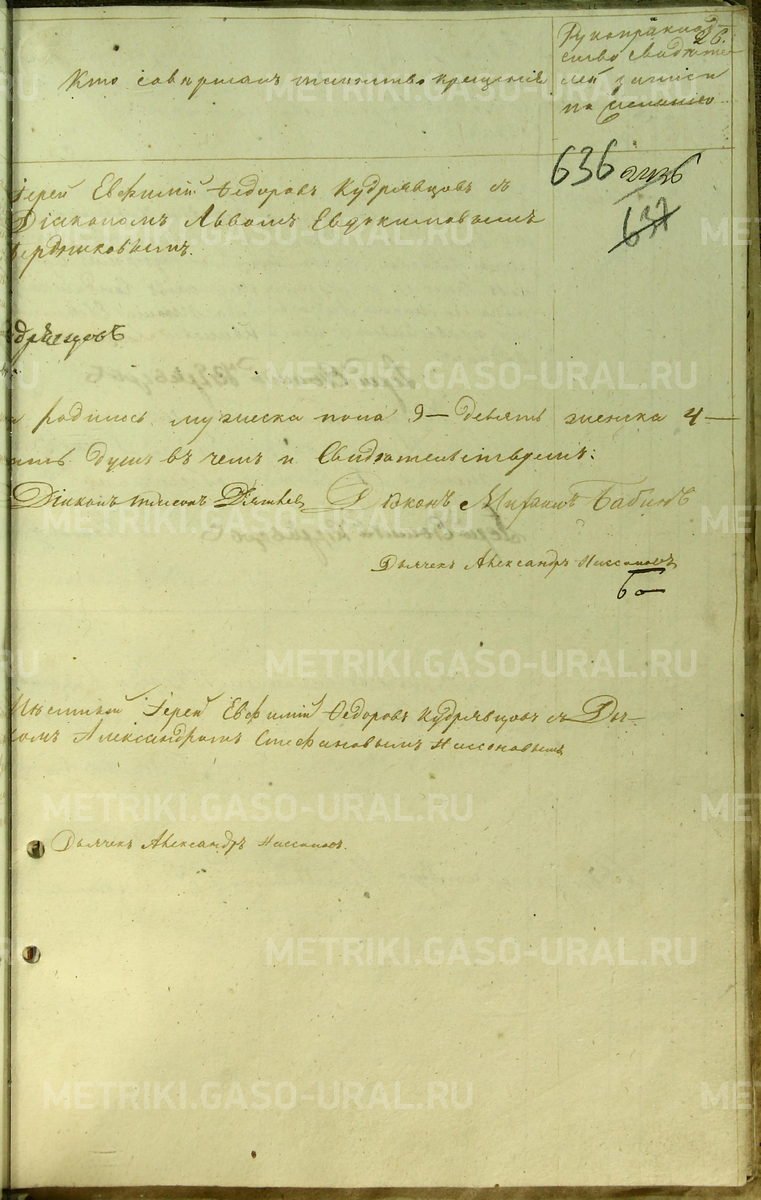 Кто совершалъ таинство крещенія
Рукоприклад-
26.
ство свидѣте
лей записи
по желанію
636
637
Іерей Евфимій Ѳедоровъ Кудрявцовъ съ
Діакономъ Львомъ Евдокимовымъ
родилось мужеска пола 9 — девять женска 4 —
душъ въ чемъ и Свидѣтельствуемъ:
Діаконъ Діаконъ Михаилъ Бабинъ
Дьячекъ Александръ Нассоновъ
Іерей Евфимій Ѳедоровъ Кудрявцовъ съ Дья-
комъ Александромъ Стефановымъ Нассоновымъ
Дьячекъ Александръ Нассоновъ.
METRIKI.GASO-URAL.RU